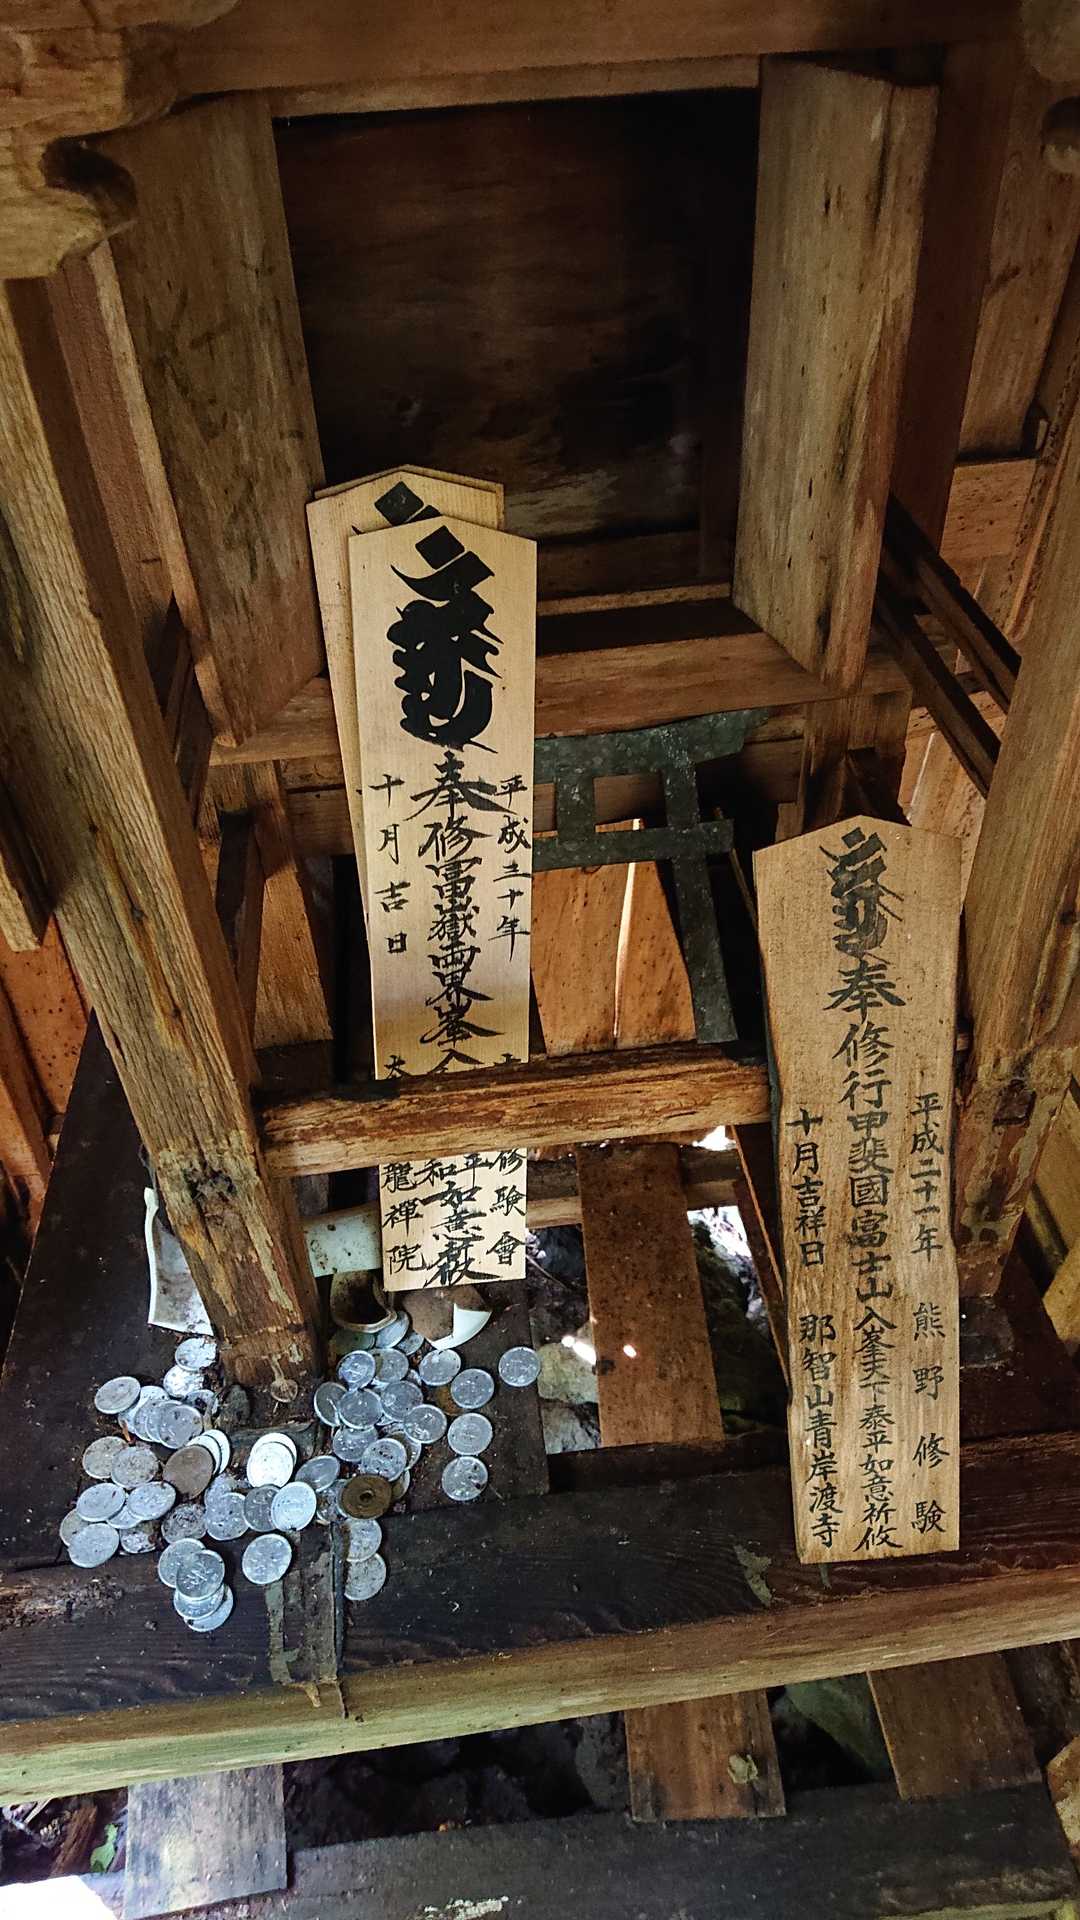 平成三十年
奉修冨嶽両界峯入
十月吉日
修験會
平和如意祈攸
龍禅院
平成二十一年 熊野修験
奉修行甲斐國富士山入峯天下泰平如意祈攸
十月吉祥日 那智山青岸渡寺